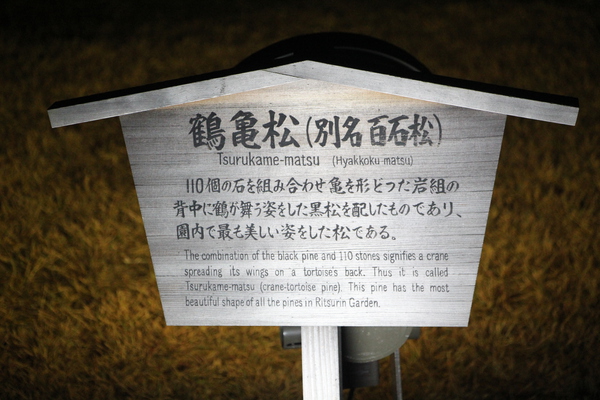 鶴亀松(別名 百石松)
Tsurukame-matsu (Hyakkoku-matsu)
110個の石を組み合わせ亀を形どった岩組の
背中に鶴が舞う姿をした黒松を配したものであり、
園内で最も美しい姿をした松である。
The combination of the black pine and 110 stones signifies a crane
spreading its wings on a tortoise's back. Thus it is called
Tsurukame-matsu (crane-tortoise pine). This pine has the most
beautiful shape of all the pines in Ritsurin Garden.